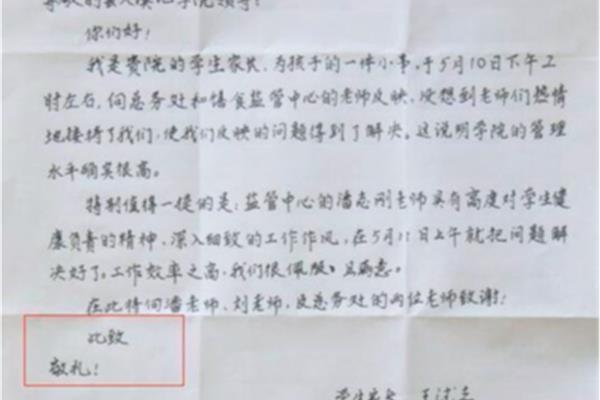 你们好!
我是贵院的学生家长,为孩子的一件小事,于5月10日下午2
时左右,向总务处和膳食监管中心的老师反映,没想到老师们热情
地接待了我们,使我们反映的问题得到了解决。这说明学院的管理
水平确实很高。
特别值得一提的是:监管中心的潘志刚老师具有高度对学生健
康负责的精神,深入细致的工作作风,在5月11日上午就把问题解
决好了。工作效率之高,我们很佩服、且满意。
在此特向潘老师、刘老师、及总务处的两位老师致谢!
此致
敬礼!
学生家长